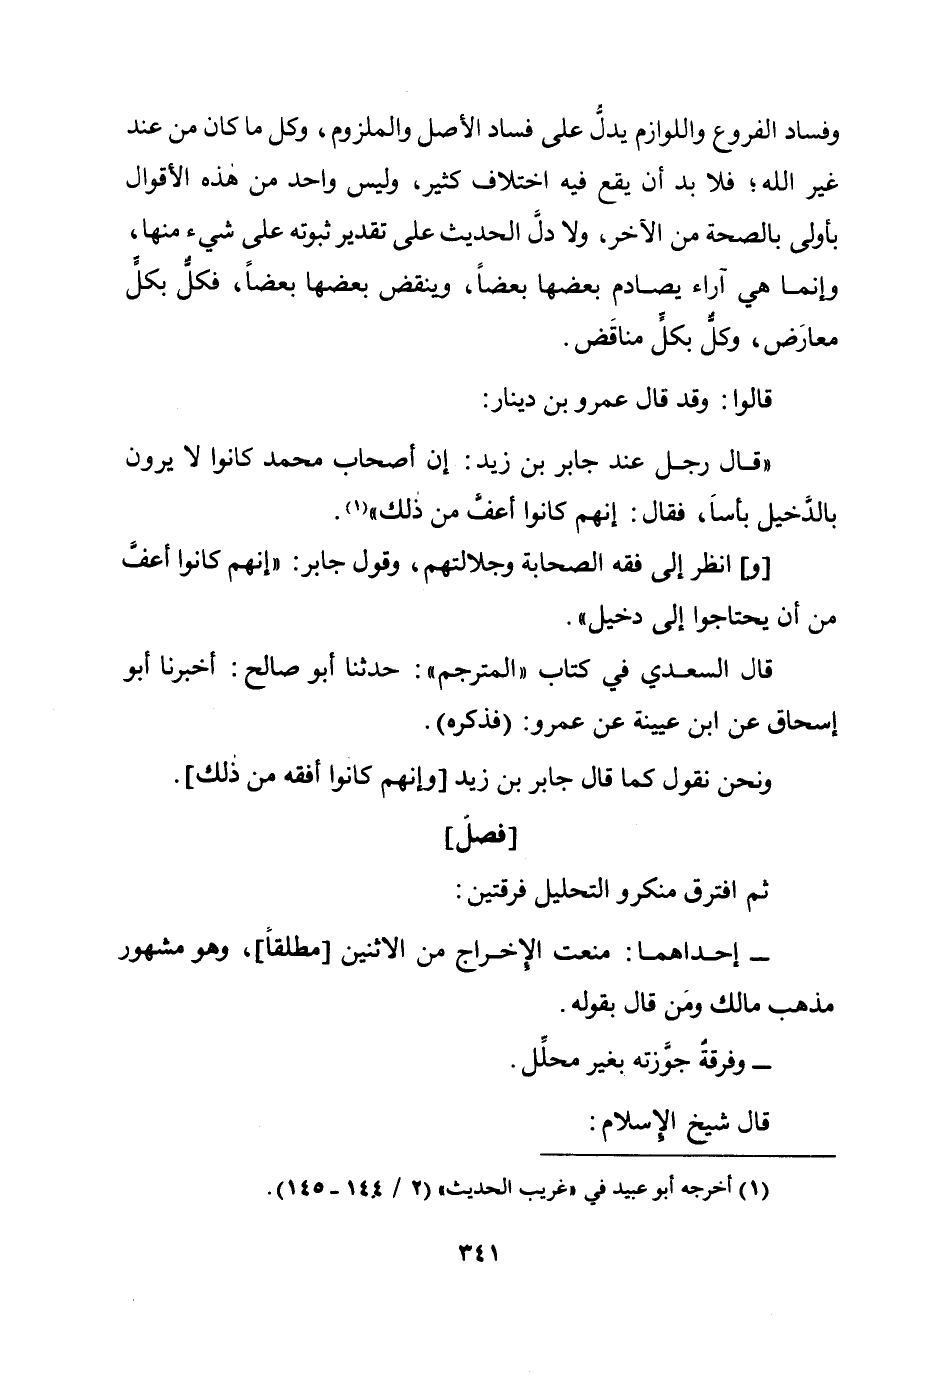 وفساد الفروع واللوازم يدلُّ على فساد الأصل والملزوم، وكل ما كان من عند
غير الله؛ فلا بد أن يقع فيه اختلاف كثير، وليس واحد من هٰذه الأقوال
بأولى بالصحة من الآخر، ولا دلَّ الحديث على تقدير ثبوته على شيء منها،
وإنما هي آراء يصادم بعضها بعضاً، وينقض بعضها بعضاً، فكلٌّ بكلٍّ
معارَض، وكلٌّ بكلٍّ مناقَض.
قالوا: وقد قال عمرو بن دينار:
«قال رجل عند جابر بن زيد: إن أصحاب محمد كانوا لا يرون
بالدَّخيل بأساً، فقال: إنهم كانوا أعفَّ من ذٰلك»(١).
[و] انظر إلى فقه الصحابة وجلالتهم، وقول جابر: «إنهم كانوا أعفَّ
من أن يحتاجوا إلى دخيل».
قال السعدي في كتاب «المترجم»: حدثنا أبو صالح: أخبرنا أبو
إسحاق عن ابن عيينة عن عمرو: (فذكره).
ونحن نقول كما قال جابر بن زيد [وإنهم كانوا أفقه من ذٰلك].
[فصلٌ]
ثم افترق منكرو التحليل فرقتين:
ـ إحداهما: منعت الإخراج من الاثنين [مطلقاً]، وهو مشهور
مذهب مالك ومَن قال بقوله.
ـ وفرقةٌ جوَّزته بغير محلِّل.
قال شيخ الإسلام:
(١) أخرجه أبو عبيد في «غريب الحديث» (٢ / ١٤٤ ـ ١٤٥).
٣٤١